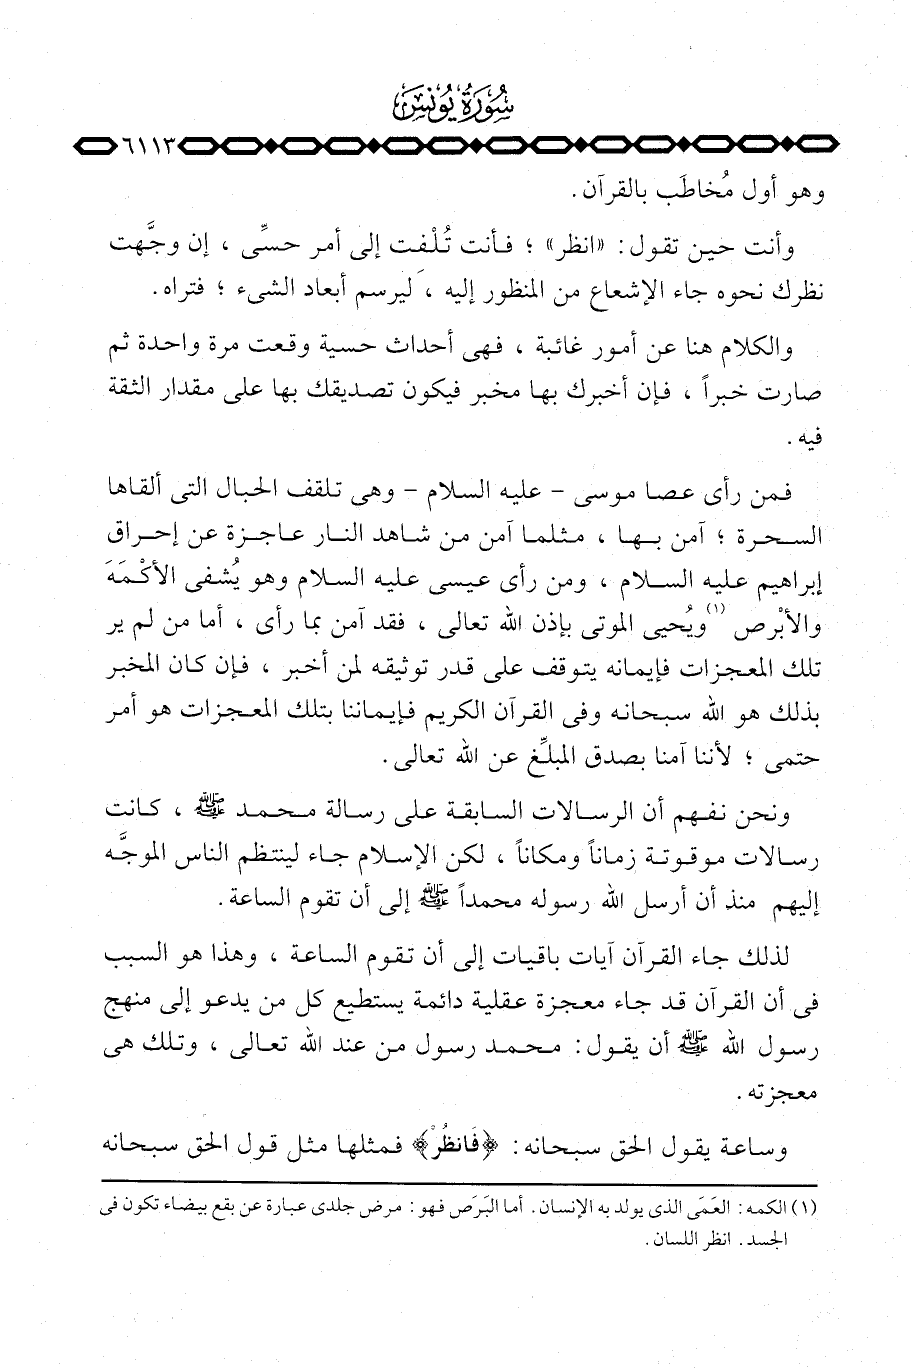 سُورَةُ يُونُس
٦١١٣
وهو أول مُخاطَب بالقرآن .
وأنت حين تقول : «انظر» ؛ فأنت تُلْفت إلى أمر حسِّى ، إن وجَّهت
نظرك نحوه جاء الإشعاع من المنظور إليه ، ليرسم أبعاد الشىء ؛ فتراه .
والكلام هنا عن أمور غائبة ، فهى أحداث حسية وقعت مرة واحدة ثم
صارت خبراً ، فإن أخبرك بها مخبر فيكون تصديقك بها على مقدار الثقة
فيه .
فمن رأى عصا موسى - عليه السلام - وهى تلقف الحبال التى ألقاها
السحرة ؛ آمن بها ، مثلما آمن من شاهد النار عاجزة عن إحراق
إبراهيم عليه السلام ، ومن رأى عيسى عليه السلام وهو يُشفى الأكْمَهَ
والأبْرص (١) ويُحيى الموتى بإذن الله تعالى ، فقد آمن بما رأى ، أما من لم ير
تلك المعجزات فإيمانه يتوقف على قدر توثيقه لمن أخبر ، فإن كان المخبر
بذلك هو الله سبحانه وفى القرآن الكريم فإيماننا بتلك المعجزات هو أمر
حتمى ؛ لأننا آمنا بصدق المبلِّغ عن الله تعالى .
ونحن نفهم أن الرسالات السابقة على رسالة محمد ﷺ ، كانت
رسالات موقوتة زماناً ومكاناً ، لكن الإسلام جاء لينتظم الناس الموجَّه
إليهم منذ أن أرسل الله رسوله محمداً ﷺ إلى أن تقوم الساعة .
لذلك جاء القرآن آيات باقيات إلى أن تقوم الساعة ، وهذا هو السبب
فى أن القرآن قد جاء معجزة عقلية دائمة يستطيع كل من يدعو إلى منهج
رسول الله ﷺ أن يقول : محمد رسول من عند الله تعالى ، وتلك هى
معجزته .
وساعة يقول الحق سبحانه : ﴿فَانظُرْ﴾ فمثلها مثل قول الحق سبحانه
(١) الكمه : العَمَى الذى يولد به الإنسان . أما البَرَص فهو : مرض جلدى عبارة عن بقع بيضاء تكون فى
الجسد . انظر اللسان .